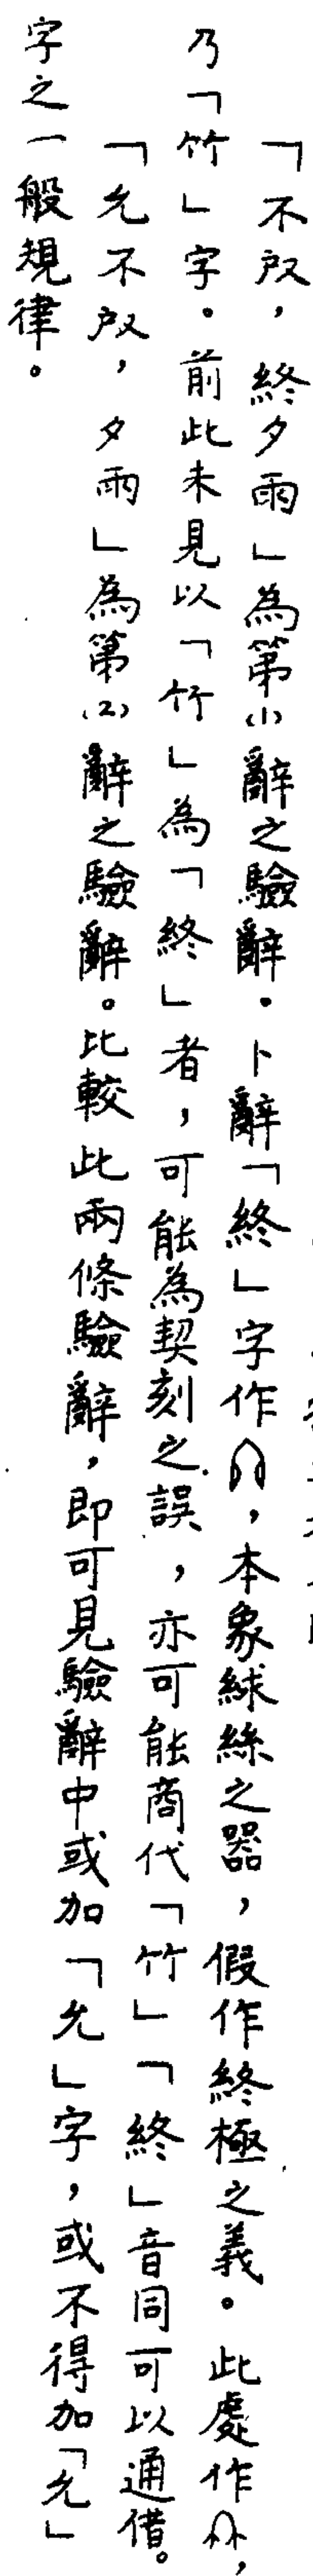 「不㱿，終夕雨」為第(1)辭之驗辭。卜辭「終」字作，本象絿絲之器，假作終極之義。此處作，
乃「竹」字。前此未見以「竹」為「終」者，可能為契刻之誤，亦可能商代「竹」「終」音同可以通借。
「允不㱿，夕雨」為第(2)辭之驗辭。比較此兩條驗辭，即可見驗辭中或加「允」字，或不得加「允」
字之一般規律。